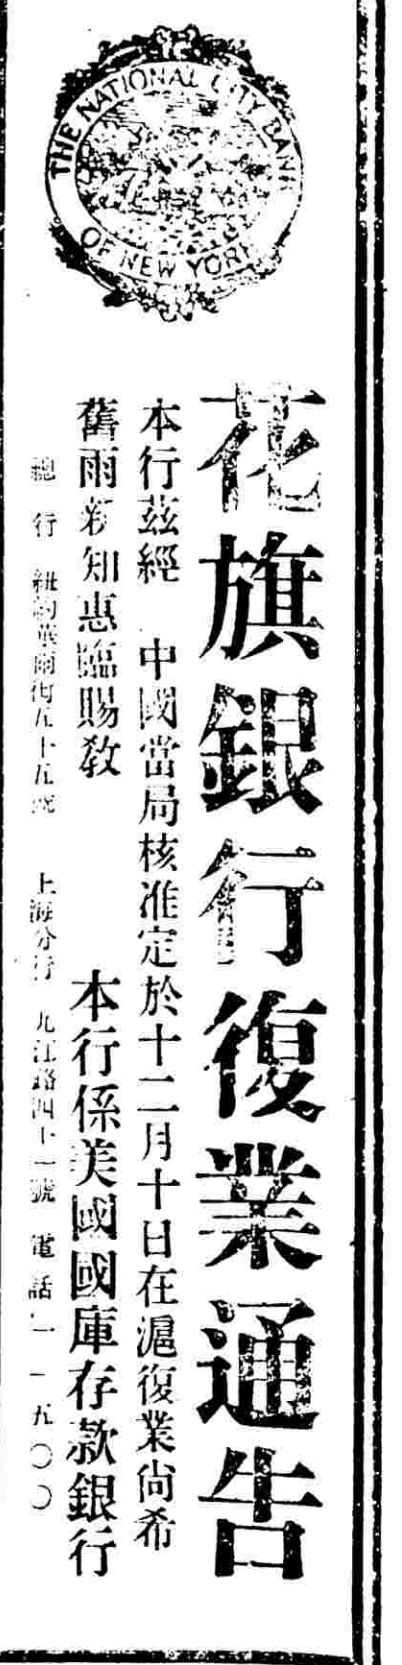 THE NATIONAL CITY BANK
OF NEW YORK
花旗銀行復業通告
本行茲經 中國當局核准定於十二月十日在滬復業尚希
舊雨新知惠臨賜教 本行係美國國庫存款銀行
總行 紐約華爾街五十五號 上海分行 九江路四十一號 電話 一一五〇〇